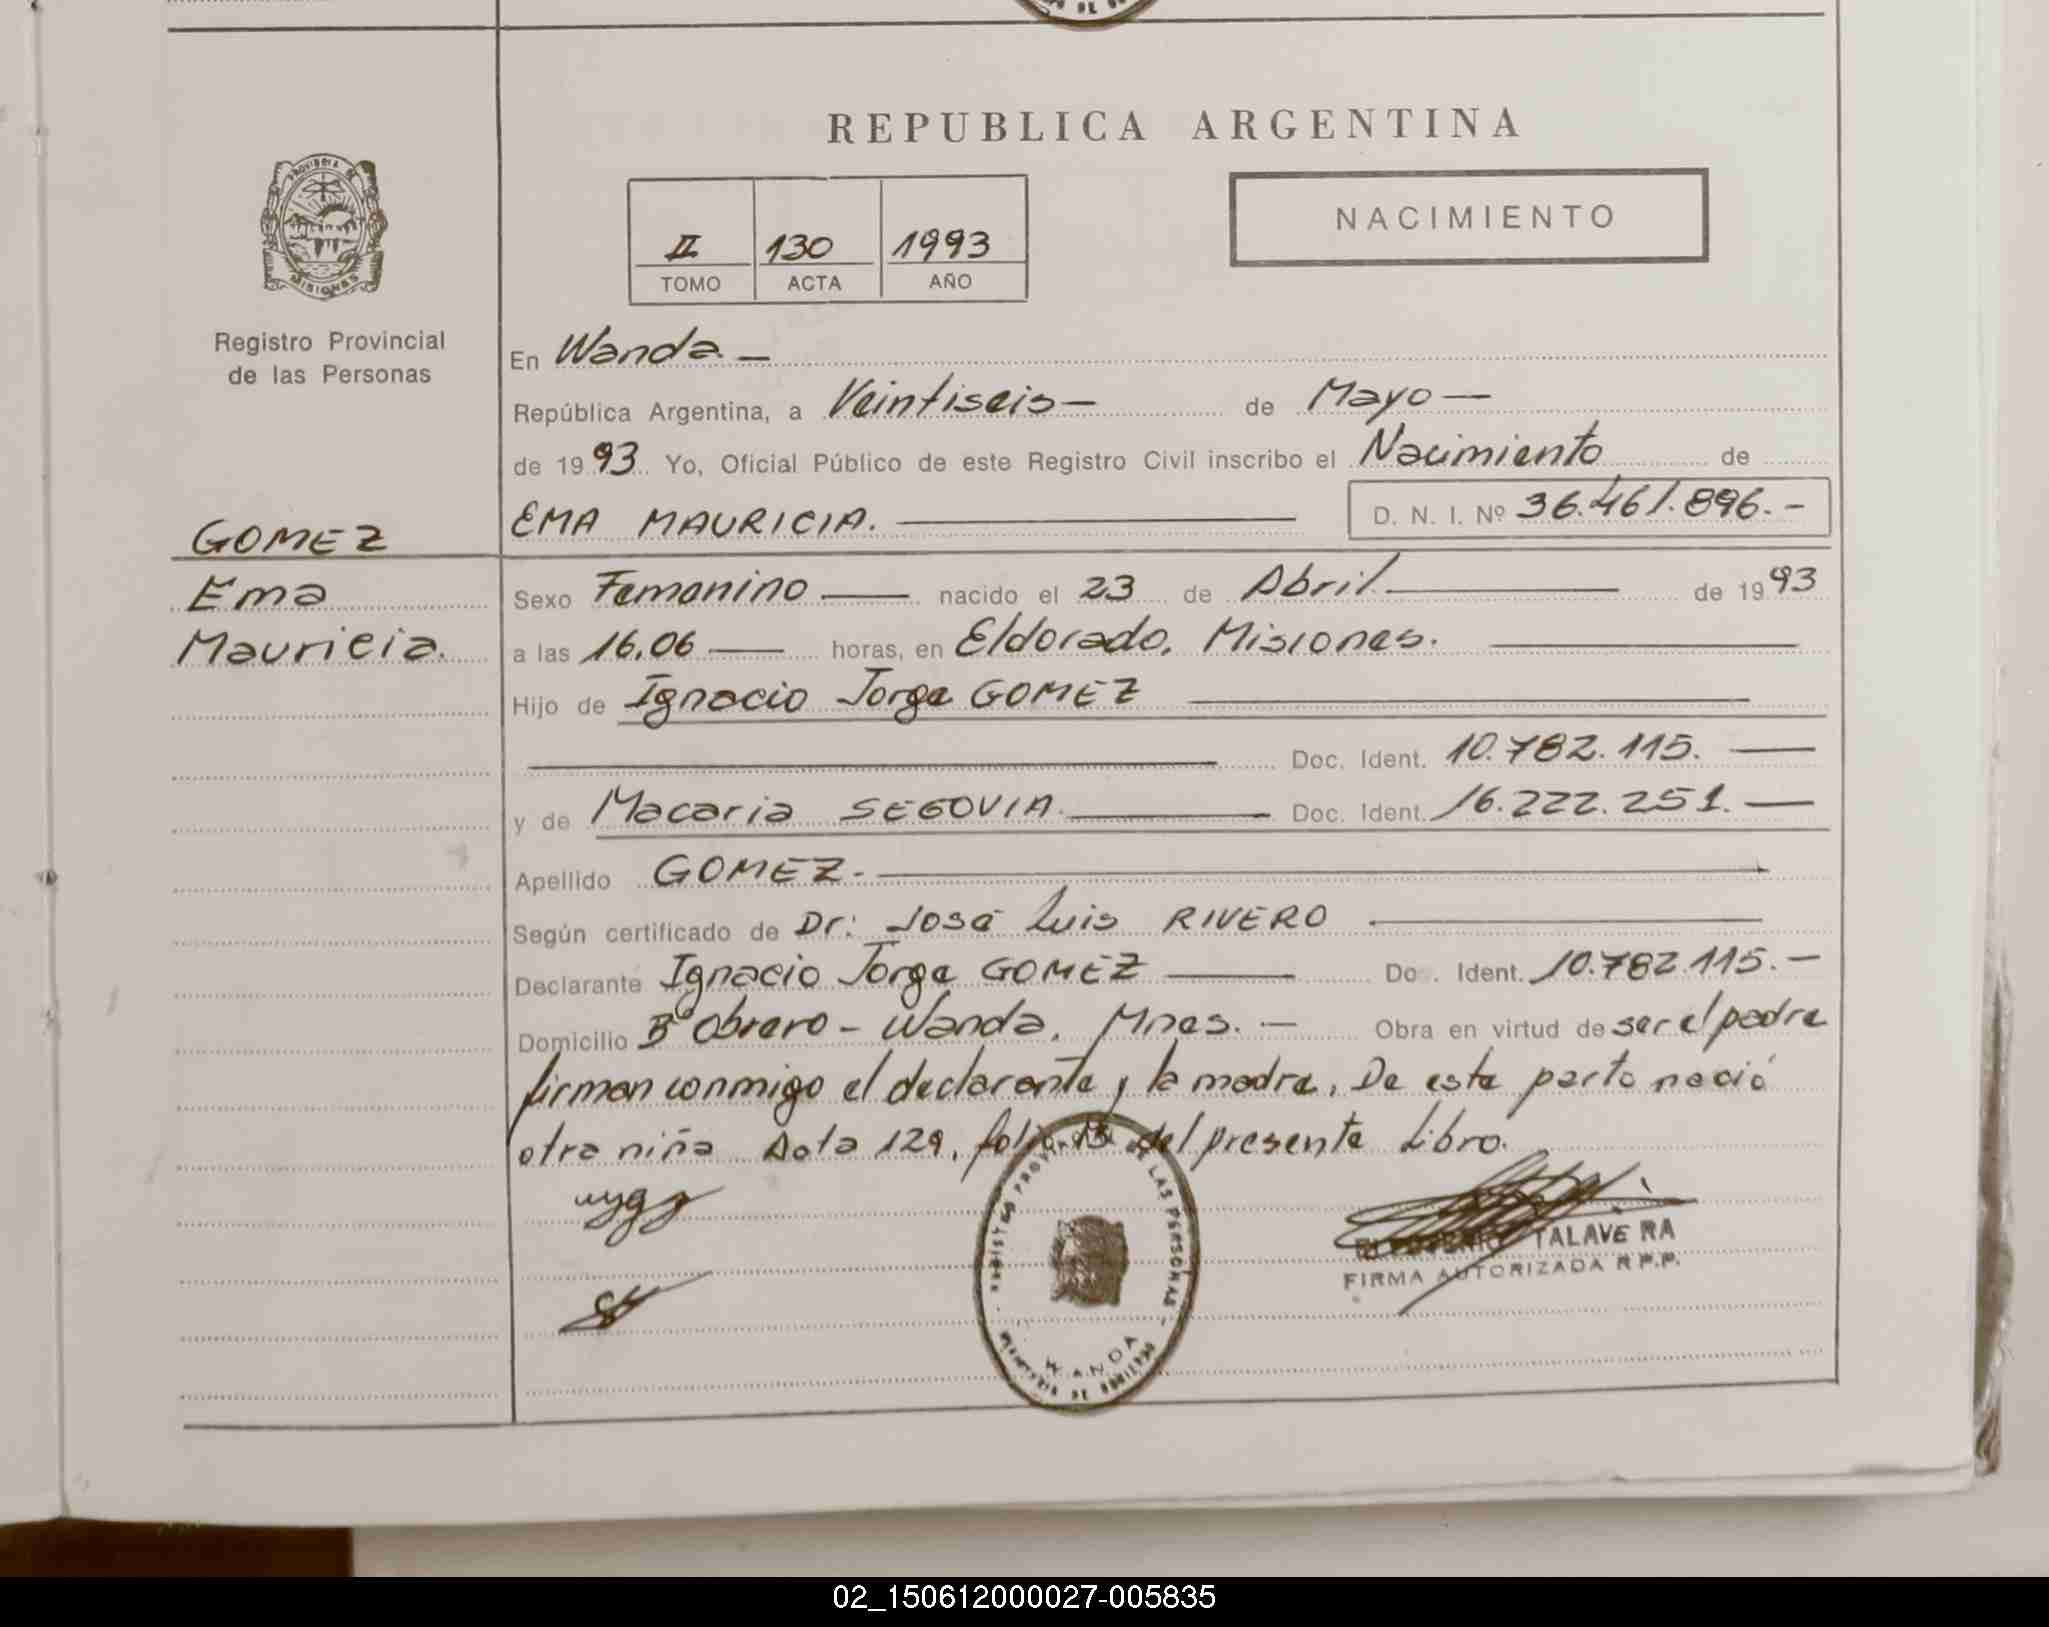 REPUBLICA ARGENTINA
PROVINCIA DE
MISIONES
II 130 1993
TOMO ACTA AÑO
NACIMIENTO
Registro Provincial
de las Personas
En Wanda -
República Argentina, a Veintiseis - de Mayo -
de 1993 Yo, Oficial Público de este Registro Civil inscribo el Nacimiento de
EMA MAURICIA. D. N. I. Nº 36.461.896.-
GOMEZ
Ema
Mauricia.
Sexo Femenino nacido el 23 de Abril de 1993
a las 16,06 horas, en Eldorado, Misiones.
Hijo de Ignacio Jorge GOMEZ
Doc. Ident. 10.782.115.
y de Macaria SEGOVIA Doc. Ident. 16.222.251.
Apellido GOMEZ.
Según certificado de Dr: José Luis RIVERO
Declarante Ignacio Jorge GOMEZ Do . Ident. 10.782.115.-
Domicilio Bº Obrero - Wanda, Mnes. - Obra en virtud de ser el padre
firman conmigo el declarante y la madre, De este parto nació
otra niña Acta 129, folio 13 del presente Libro.
DE LAS PERSONAS
WANDA
TALAVERA
FIRMA AUTORIZADA R.P.P.
02_150612000027-005835